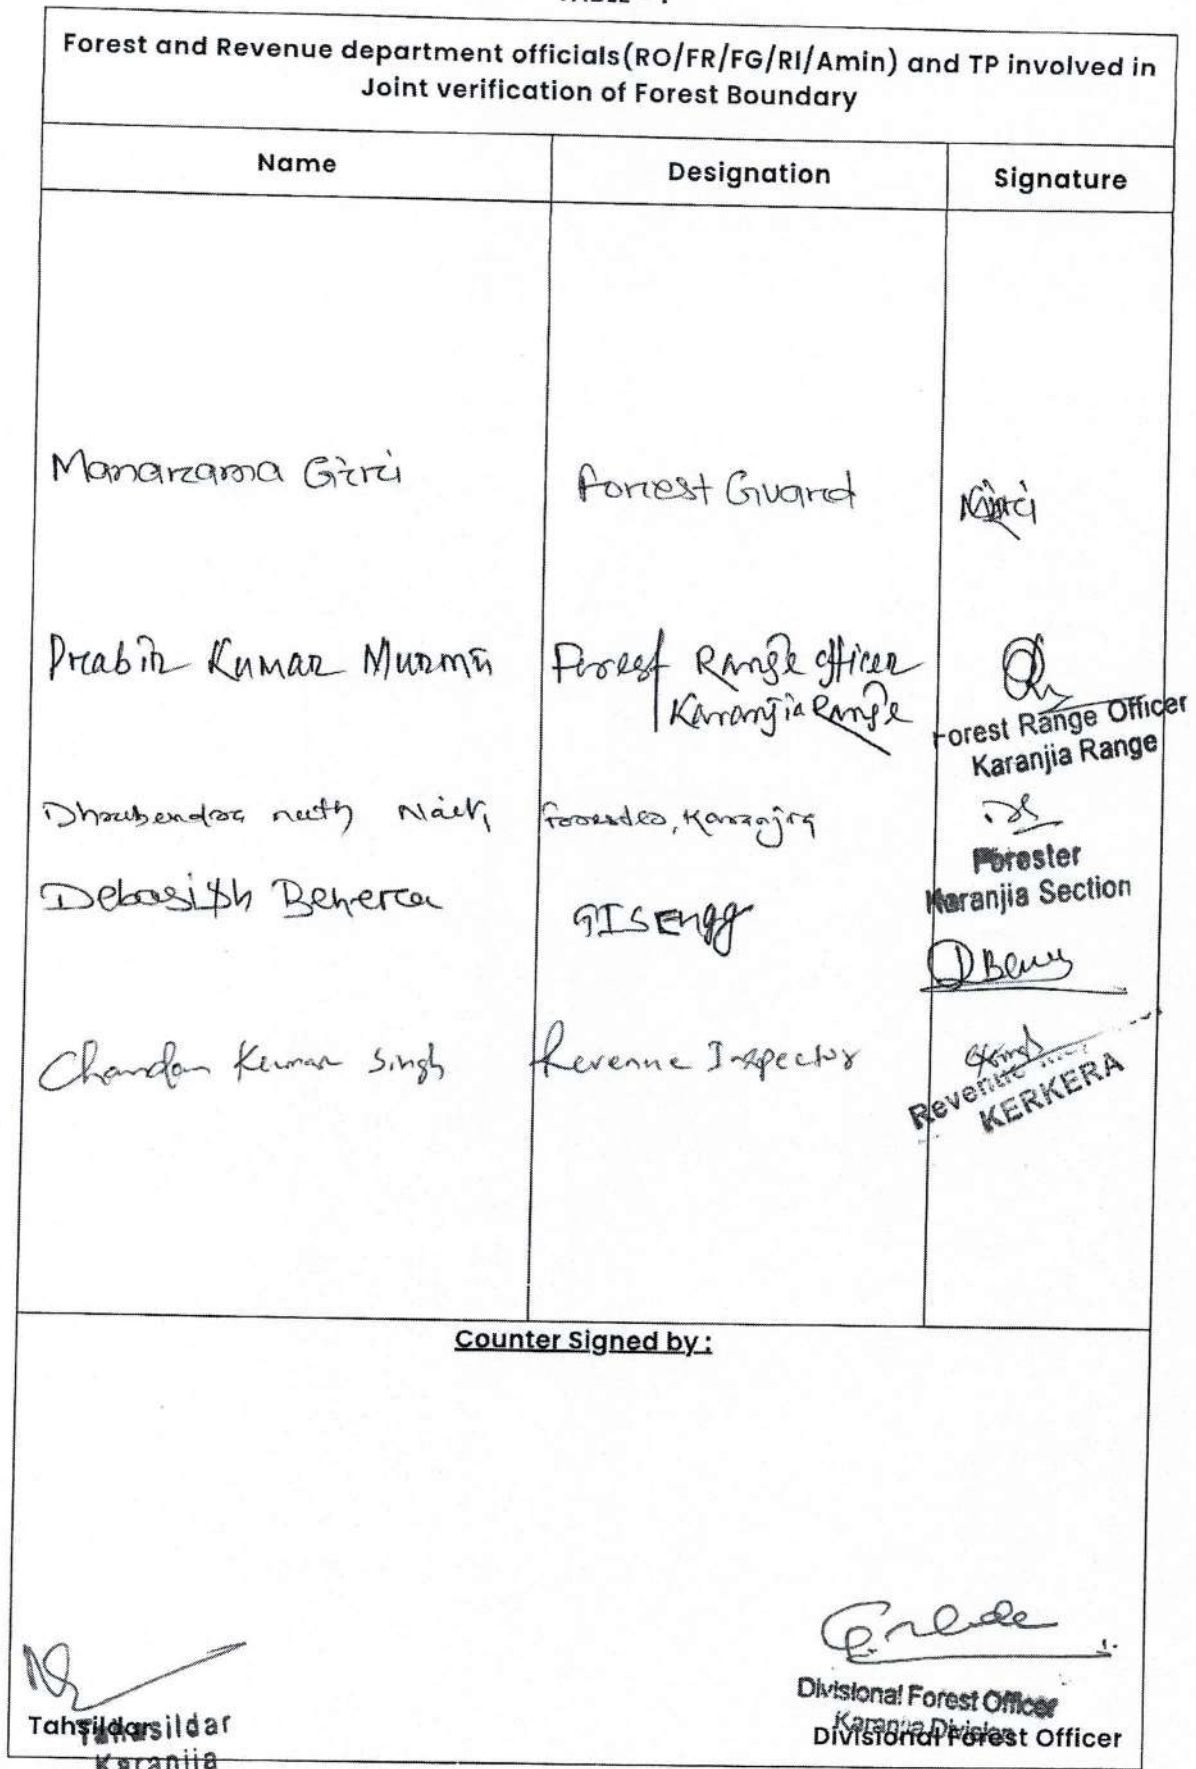 Forest and Revenue department officials(RO/FR/FG/RI/Amin) and TP involved in
Joint verification of Forest Boundary
Name Designation Signature
Manarama Giri Forest Guard
Prabir Kumar Murmu Forest Range Officer
Karanjia Range
Forest Range Officer
Karanjia Range
Naik Forester, Karanjia
Forester
Karanjia Section
Debasish Behera GIS Engg
Chandan Kumar Singh Revenue Inspector
Revenue
KERKERA
Counter Signed by :
Divisional Forest Officer
Karanjia Division
Tahsildar Divisional Forest Officer
Tahasildar
Karanjia